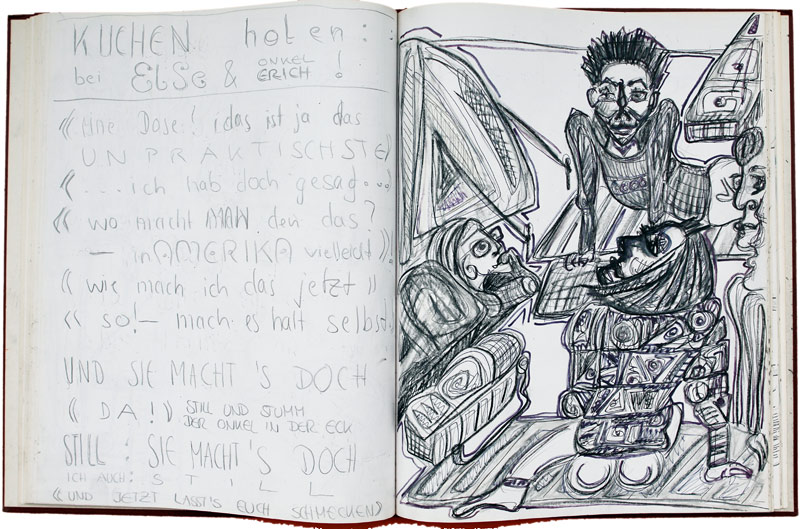 KUCHEN holen:
bei ElSe & ONKEL ERICH !
UNPRAKTISCHSTE
« ...ich hab doch gesag...»
« wo macht MAN den das?
— in AMERIKA vielleicht »!
« wie mach ich das jetzt »
« so!— mach es halt selbst.
UND SIE MACHT'S DOCH
« DA!» STILL UND STUMM
DER ONKEL IN DER ECK
STILL : SIE MACHT'S DOCH
ICH AUCH: STILL
« UND JETZT LASST'S EUCH SCHMECKEN»